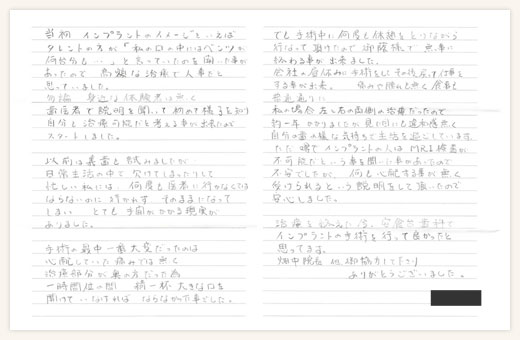 当初 インプラントのイメージといえば
タレントの方が「私の口の中にはベンツが
何台分も…」と言っていたのを聞いた事が
あったので 高額な治療で人事だと
思っていました。
勿論 身近な体験者は無く
歯医者で説明を聞いて初めて様子を知り
自分も治療可能だと考える事が出来たが
スタートしました。
以前は裏歯も試みましたが
日常生活の中で欠けてしまったりして
忙しい私には、何度も医者に行かなくては
ならないのに行かれず そのままになって
しまい とても手間がかかる現実が
ありました。
手術の最中一番大変だったのは
心配していた痛みでは無く
治療部分が奥の方だった為
一時間位の間 精一杯大きな口を
開けて いなければ ならなかった事でした。
でも手術中に何度も休憩をとりながら
行なって頂けたので御蔭様で無事に
終わる事が出来ました。
会社の昼休みに手術をしてその後戻って仕事を
する事が出来、 痛みや腫れも無く 食事も
普通通りに
私の場合 左と右の両側の治療だったので
約一年 かかりましたが 見た目にも違和感無く
自分の歯の様な気持ちで生活を送っています。
ただ 噂で インプラントの人は MRI検査が
不可能だという事を聞いた事があったので
不安でしたが、何も心配する事が無く
受けられるという説明をして頂いたので
安心しました。
治療を終えた今、安食歯科で
インプラントの手術を行って良かったと
思ってます。
畑中院長 他、御協力して下さり
ありがとうございました。